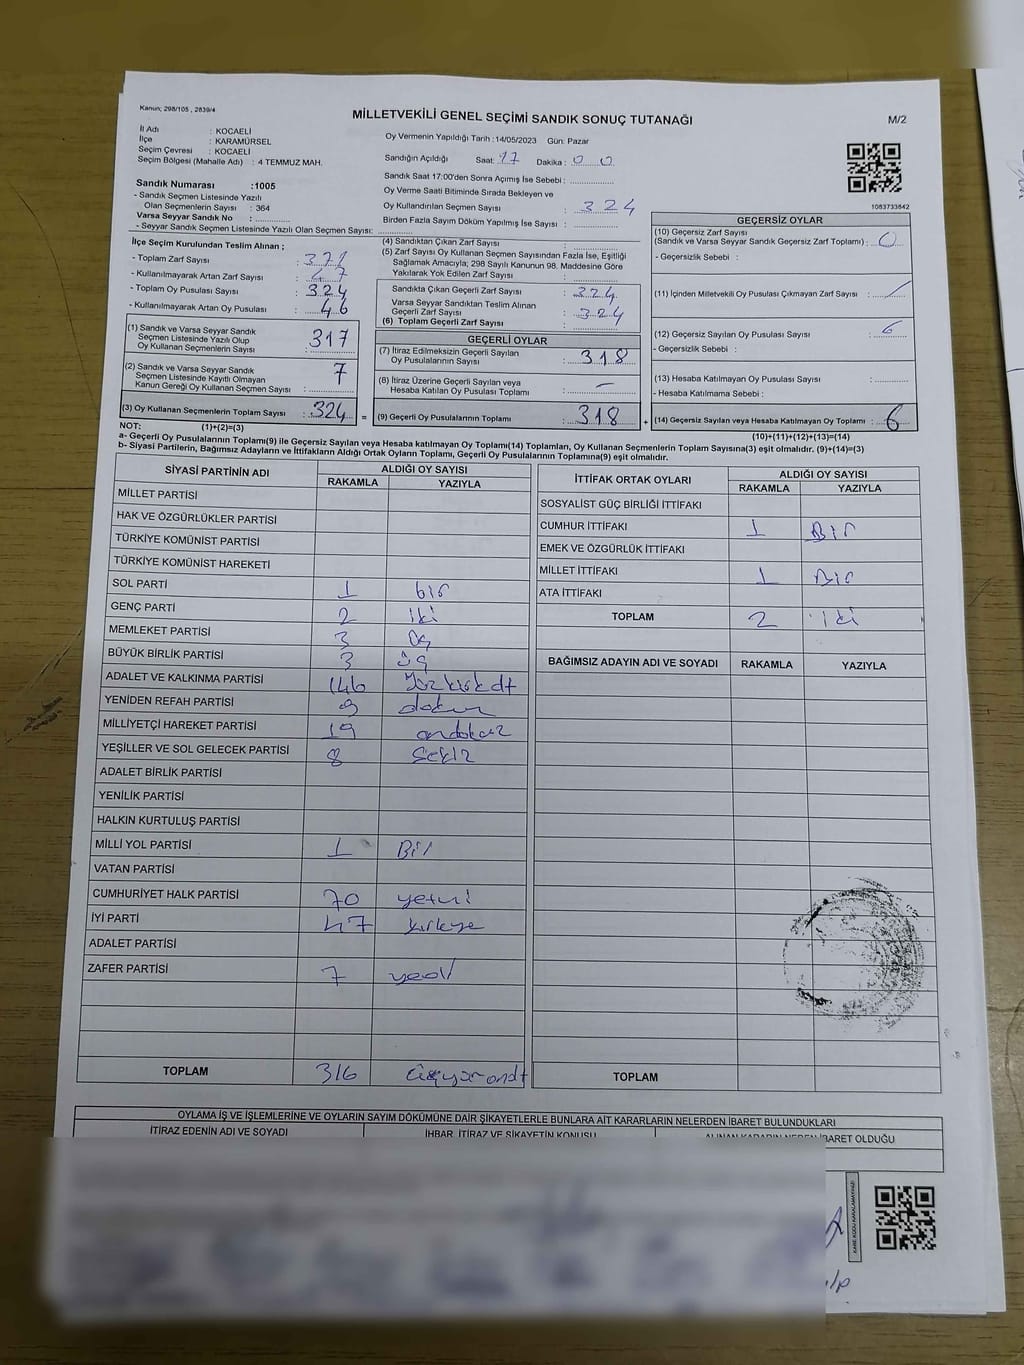 Kanun; 298/105 , 2839/4
MİLLETVEKİLİ GENEL SEÇİMİ SANDIK SONUÇ TUTANAĞI
M/2
İl Adı : KOCAELİ
İlçe : KARAMÜRSEL
Seçim Çevresi : KOCAELİ
Seçim Bölgesi (Mahalle Adı) : 4 TEMMUZ MAH.
Sandık Numarası :1005
- Sandık Seçmen Listesinde Yazılı
Olan Seçmenlerin Sayısı : 364
Varsa Seyyar Sandık No :
- Seyyar Sandık Seçmen Listesinde Yazılı Olan Seçmen Sayısı:
Oy Vermenin Yapıldığı Tarih :14/05/2023 Gün: Pazar
Sandığın Açıldığı Saat: 17 Dakika : 00
Sandık Saat 17:00'den Sonra Açımış İse Sebebi :
Oy Verme Saati Bitiminde Sırada Bekleyen ve
Oy Kullandırılan Seçmen Sayısı : 324
Birden Fazla Sayım Döküm Yapılmış İse Sayısı :
1083733842
İlçe Seçim Kurulundan Teslim Alınan ;
- Toplam Zarf Sayısı : 371
- Kullanılmayarak Artan Zarf Sayısı : 47
- Toplam Oy Pusulası Sayısı : 324
- Kullanılmayarak Artan Oy Pusulası : 46
(1) Sandık ve Varsa Seyyar Sandık
Seçmen Listesinde Yazılı Olup
Oy Kullanan Seçmenlerin Sayısı : 317
(2) Sandık ve Varsa Seyyar Sandık
Seçmen Listesinde Kayıtlı Olmayan
Kanun Gereği Oy Kullanan Seçmen Sayısı : 7
(3) Oy Kullanan Seçmenlerin Toplam Sayısı : 324 =
(4) Sandıktan Çıkan Zarf Sayısı :
(5) Zarf Sayısı Oy Kullanan Seçmen Sayısından Fazla İse, Eşitliği
Sağlamak Amacıyla; 298 Sayılı Kanunun 98. Maddesine Göre
Yakılarak Yok Edilen Zarf Sayısı :
Sandıkta Çıkan Geçerli Zarf Sayısı : 324
Varsa Seyyar Sandıktan Teslim Alınan
Geçerli Zarf Sayısı : 324
(6) Toplam Geçerli Zarf Sayısı :
GEÇERLİ OYLAR
(7) İtiraz Edilmeksizin Geçerli Sayılan
Oy Pusulalarının Sayısı : 318
(8) İtiraz Üzerine Geçerli Sayılan veya
Hesaba Katılan Oy Pusulası Toplamı : –
(9) Geçerli Oy Pusulalarının Toplamı : 318 +
GEÇERSİZ OYLAR
(10) Geçersiz Zarf Sayısı
(Sandık ve Varsa Seyyar Sandık Geçersiz Zarf Toplamı) : 0
- Geçersizlik Sebebi :
(11) İçinden Milletvekili Oy Pusulası Çıkmayan Zarf Sayısı : /
(12) Geçersiz Sayılan Oy Pusulası Sayısı : 6
- Geçersizlik Sebebi :
(13) Hesaba Katılmayan Oy Pusulası Sayısı :
- Hesaba Katılmama Sebebi :
(14) Geçersiz Sayılan veya Hesaba Katılmayan Oy Toplamı : 6
NOT: (1)+(2)=(3)
(10)+(11)+(12)+(13)=(14)
a- Geçerli Oy Pusulalarının Toplamı(9) ile Geçersiz Sayılan veya Hesaba katılmayan Oy Toplamı(14) Toplamları, Oy Kullanan Seçmenlerin Toplam Sayısına(3) eşit olmalıdır. (9)+(14)=(3)
b- Siyasi Partilerin, Bağımsız Adayların ve İttifakların Aldığı Ortak Oyların Toplamı, Geçerli Oy Pusulalarının Toplamına(9) eşit olmalıdır.
SİYASİ PARTİNİN ADI ALDIĞI OY SAYISI
RAKAMLA YAZIYLA
MİLLET PARTİSİ
HAK VE ÖZGÜRLÜKLER PARTİSİ
TÜRKİYE KOMÜNİST PARTİSİ
TÜRKİYE KOMÜNİST HAREKETİ
SOL PARTİ 1 bir
GENÇ PARTİ 2 iki
MEMLEKET PARTİSİ 3 Üç
BÜYÜK BİRLİK PARTİSİ 3 üç
ADALET VE KALKINMA PARTİSİ 146
YENİDEN REFAH PARTİSİ 9 dokuz
MİLLİYETÇİ HAREKET PARTİSİ 19 ondokuz
YEŞİLLER VE SOL GELECEK PARTİSİ 8 Sekiz
ADALET BİRLİK PARTİSİ
YENİLİK PARTİSİ
HALKIN KURTULUŞ PARTİSİ
MİLLİ YOL PARTİSİ 1 Bir
VATAN PARTİSİ
CUMHURİYET HALK PARTİSİ 70 yetmi
İYİ PARTİ 47
ADALET PARTİSİ
ZAFER PARTİSİ 7 yedi
TOPLAM 316
İTTİFAK ORTAK OYLARI ALDIĞI OY SAYISI
RAKAMLA YAZIYLA
SOSYALİST GÜÇ BİRLİĞİ İTTİFAKI
CUMHUR İTTİFAKI 1 Bir
EMEK VE ÖZGÜRLÜK İTTİFAKI
MİLLET İTTİFAKI 1 Bir
ATA İTTİFAKI
TOPLAM 2 iki
BAĞIMSIZ ADAYIN ADI VE SOYADI RAKAMLA YAZIYLA
TOPLAM
OYLAMA İŞ VE İŞLEMLERİNE VE OYLARIN SAYIM DÖKÜMÜNE DAİR ŞİKAYETLERLE BUNLARA AİT KARARLARIN NELERDEN İBARET BULUNDUKLARI
İTİRAZ EDENİN ADI VE SOYADI İHBAR, İTİRAZ VE ŞİKAYETİN KONUSU ALINAN KARARIN NEDEN İBARET OLDUĞU